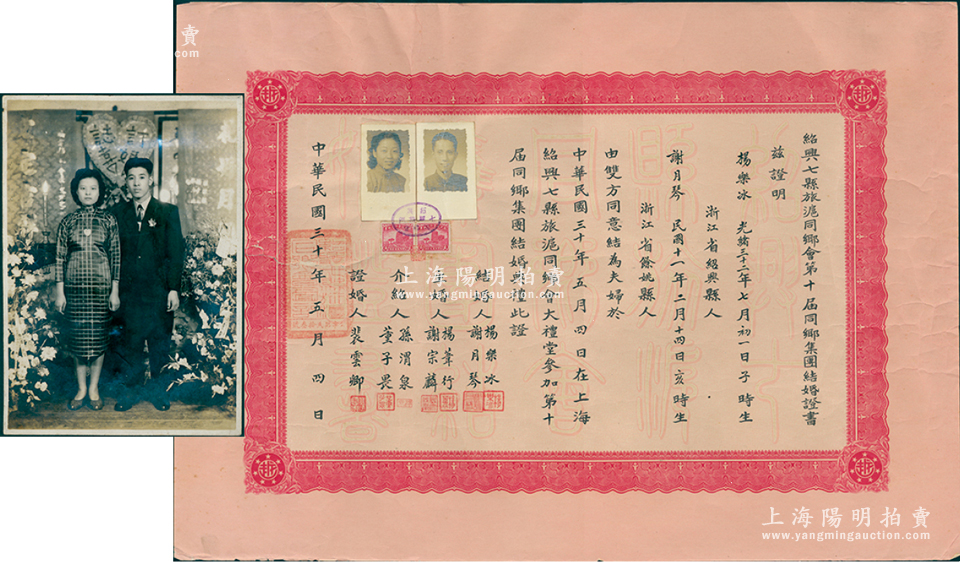 紹興七縣旅滬同鄉會第十屆同鄉集團結婚證書
茲證明
楊樂冰 光緒三十二年七月初一日子時生
浙江省紹興縣人
謝月琴 民國十一年二月十四日亥時生
浙江省餘姚縣人
由雙方同意結為夫婦於
中華民國三十年五月四日在上海
紹興七縣旅滬同鄉會大禮堂參加第十
屆同鄉集團結婚典禮此證
結婚人 楊樂冰
謝月琴
主婚人 楊葦行
謝宗麟
介紹人 孫渭泉
董子畏
證婚人 裴雲卿
中華民國三十年五月四日
上海陽明拍賣
www.yangmingauction.com
上海陽明拍賣
www.yangmingauction.com
賣
n.com